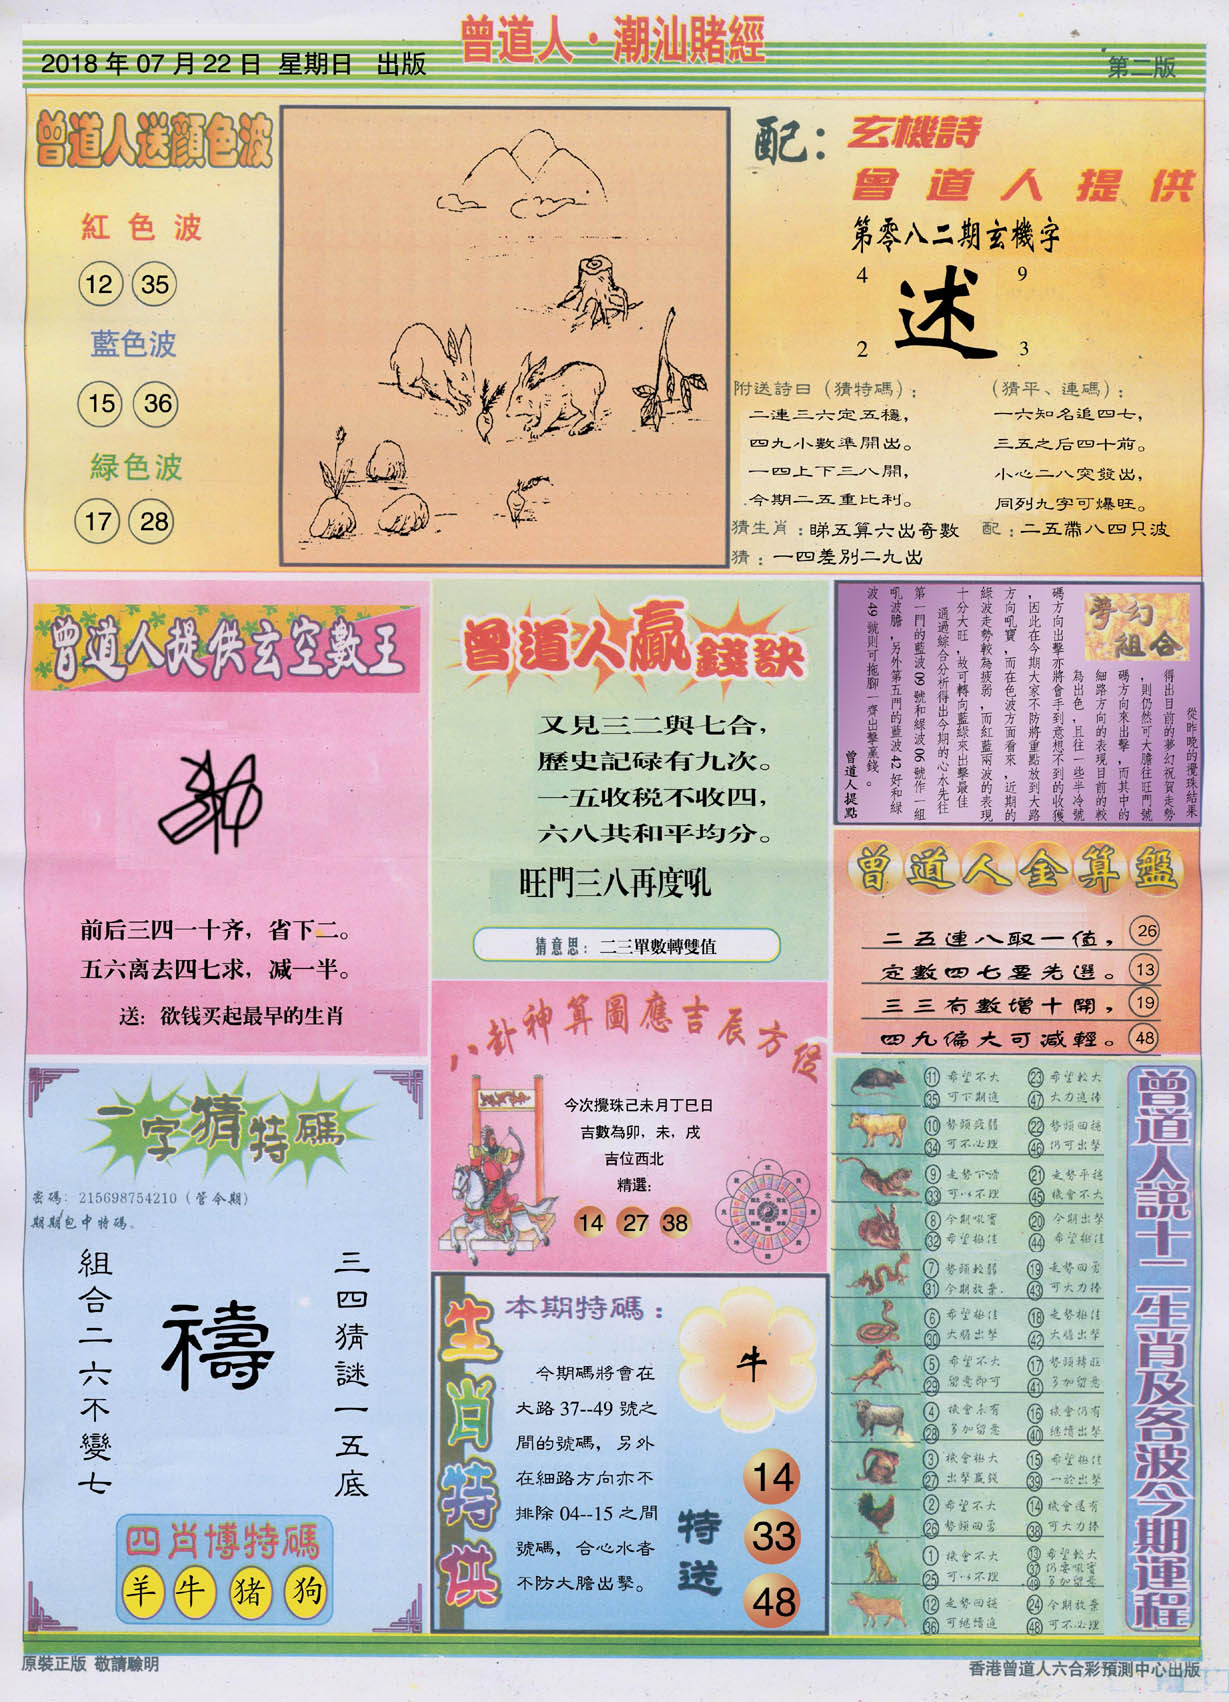 曾道人·潮汕賭經
2018 年 07 月 22 日 星期日 出版
第二版
曾道人送顏色波
紅色波
12 35
藍色波
15 36
緑色波
17 28
配：玄機詩
曾道人提供
第零八二期玄機字
4 9
述
2 3
附送詩曰（猜特碼）：
二連三六定五穩，
四九小數準開出。
一四上下三八開，
今期二五重比利。
（猜平、連碼）：
一六知名追四七，
三五之后四十前。
小心二八突發出，
同列九字可爆旺。
猜生肖：睇五算六出奇數
配：二五帶八四只波
猜：一四差別二九出
曾道人提供玄空數王
前后三四一十齐，省下二。
五六离去四七求，减一半。
送：欲钱买起最早的生肖
曾道人贏錢訣
又見三二與七合，
歷史記碌有九次。
一五收税不收四，
六八共和平均分。
旺門三八再度吼
猜意思：二三單數轉雙值
夢幻組合
從昨晚的攪珠結果
得出目前的夢幻祝賀走勢
，則仍然可大膽往旺門號
碼方向來出擊，而其中的
細路方向的表現目前的較
為出色，且往一些半冷號
碼方向出擊亦將會手到意想不到的收獲
，因此在今期大家不防將重點放到大路
方向吼寶，而在色波方面看來，近期的
綠波走勢較為疲弱，而紅藍兩波的表現
十分大旺，故可轉向藍綠來出擊最佳
通過綜合分析得出今期的心水先往
第一門的藍波 09 號和綠波 06 號作一組
吼波膽，另外第五門的藍波 42 好和綠
波 49 號則可拖腳一齊出擊贏錢。
曾道人提點
曾道人金算盤
二五連八取一值， 26
定數四七要先選。 13
三三有數增十開， 19
四九偏大可減輕。 48
八卦神算圖應吉辰方位
今次攪珠己未月丁巳日
吉數為卯，未，戌
吉位西北
精選:
14 27 38
一字猜特碼
密碼：215698754210（管令期）
期期包中特碼。
三四猜謎一五底
禱
組合二六不變七
四肖博特碼
羊 牛 猪 狗
生肖特供
本期特碼：
牛
今期碼將會在
大路 37--49 號之
間的號碼，另外
在細路方向亦不
排除 04--15 之間
號碼，合心水者
不防大膽出擊。
特送
14
33
48
曾道人説十二生肖及各波今期運程
11 希望不大 23 希望較大
35 可下期追 47 大力追捧
10 勢頭疲弱 22 勢頭回穩
34 可不必理 46 仍可出擊
9 走勢下滑 21 走勢平穩
33 可以不理 45 機會不大
8 今期吼寶 20 今期出擊
32 希望極佳 44 希望極佳
7 勢頭較弱 19 走勢回勇
31 今期放棄 43 可大力捧
6 希望極佳 18 走勢極佳
30 大膽出擊 42 大膽出擊
5 希望不大 17 勢頭轉旺
29 留意即可 41 多加留意
4 機會未有 16 機會仍有
28 多加留意 40 繼續出擊
3 機會極大 15 希望極佳
27 出擊贏錢 39 一於出擊
2 希望不大 14 機會還有
26 勢頭回勇 38 可大力捧
1 機會不大 13 希望較大
25 可以不理 37 仍要吼寶
49 多加留意
12 走勢回穩 24 今期放棄
36 可繼續追 48 可不必理
原裝正版 敬請驗明
香港曾道人六合彩預測中心出版